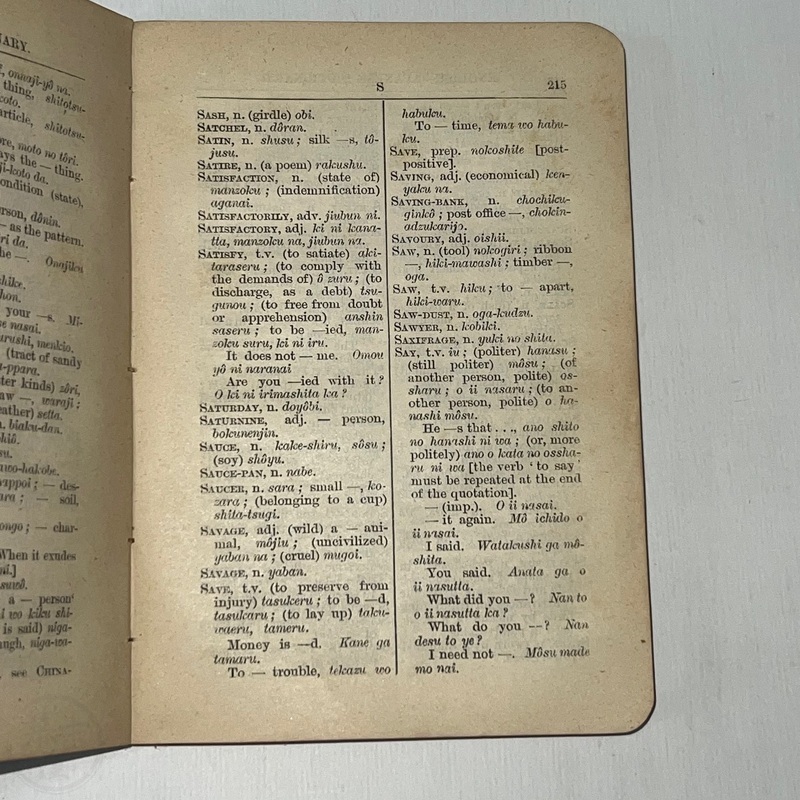 ARY.
onnaji-yô na.
thing, shitotsu-
koto.
article, shitotsu-
moto no tôri.
the — thing.
ji-koto da.
condition (state),
dônin.
— as the pattern.
ri da.
he —. Onajiku
hike.
hon.
your —s. Mi-
e nasai.
urushi, menkio.
(tract of sandy
a-ppara.
kinds) zôri,
waraji;
setta.
n, biaku-dan.
wo-hakobe.
appoi; — des-
— soil,
ongo; — char-
When it exudes
ni.]
suwô.
a — person'
i wo kiku shi-
is said) niga-
ugh, niga-wa-
see CHINA-
S 215
SASH, n. (girdle) obi.
SATCHEL, n. dôran.
SATIN, n. shusu; silk —s, tô-
jusu.
SATIRE, n. (a poem) rakushu.
SATISFACTION, n. (state of)
manzoku; (indemnification)
aganai.
SATISFACTORILY, adv. jiubun ni.
SATISFACTORY, adj. ki ni kana-
tta, manzoku na, jiubun na.
SATISFY, t.v. (to satiate) aki-
taraseru; (to comply with
the demands of) ô zuru; (to
discharge, as a debt) tsu-
gunou; (to free from doubt
or apprehension) anshin
saseru; to be —ied, man-
zoku suru, ki ni iru.
It does not — me. Omou
yô ni naranai
Are you —ied with it?
O ki ni irimashita ka?
SATURDAY, n. doyôbi.
SATURNINE, adj. — person,
bokunenjin.
SAUCE, n. kake-shiru, sôsu;
(soy) shôyu.
SAUCE-PAN, n. nabe.
SAUCER, n. sara; small —, ko-
zara; (belonging to a cup)
shita-tsugi.
SAVAGE, adj. (wild) a — ani-
mal, môjiu; (uncivilized)
yaban na; (cruel) mugoi.
SAVAGE, n. yaban.
SAVE, t.v. (to preserve from
injury) tasukeru; to be —d,
tasukaru; (to lay up) taku-
waeru, tameru.
Money is —d. Kane ga
tamaru.
To — trouble, tekazu wo
habuku.
To — time, tema wo habu-
ku.
SAVE, prep. nokoshite [post-
positive].
SAVING, adj. (economical) ken-
yaku na.
SAVING-BANK, n. chochiku-
ginkô; post office —, chokin-
adzukarijo.
SAVOURY, adj. oishii.
SAW, n. (tool) nokogiri; ribbon
—, hiki-mawashi; timber —,
oga.
SAW, t.v. hiku; to — apart,
hiki-waru.
SAW-DUST, n. oga-kudzu.
SAWYER, n. kobiki.
SAXIFRAGE, n. yuki no shita.
SAY, t.v. iu; (politer) hanasu;
(still politer) môsu; (of
another person, polite) os-
sharu; o ii nasaru; (to an-
other person, polite) o ha-
nashi môsu.
He —s that . . ., ano shito
no hanashi ni wa; (or, more
politely) ano o kata no ossha-
ru ni wa [the verb ‘to say’
must be repeated at the end
of the quotation].
— (imp.). O ii nasai.
— it again. Mô ichido o
ii nasai.
I said. Watakushi ga mô-
shita.
You said. Anata ga o
ii nasutta.
What did you —? Nan to
o ii nasutta ka?
What do you —? Nan
desu to ye?
I need not —. Môsu made
mo nai.